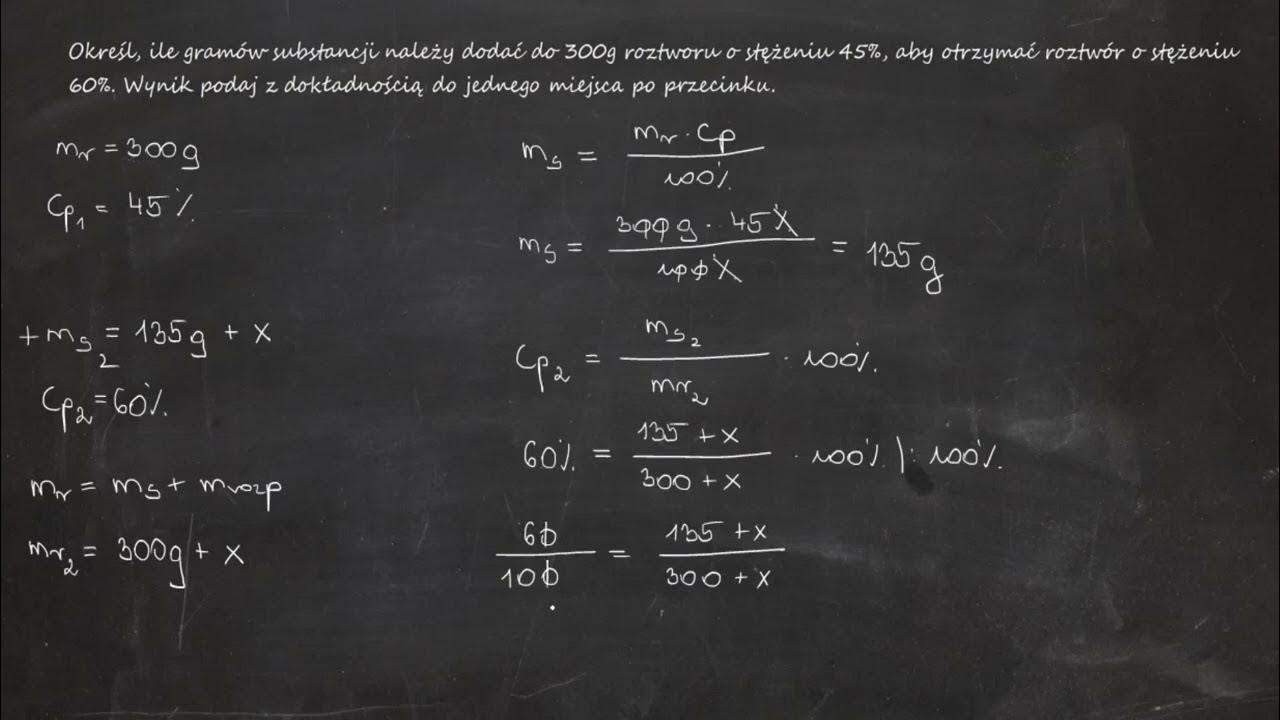 Określ, ile gramów substancji należy dodać do 300g roztworu o stężeniu 45%, aby otrzymać roztwór o stężeniu
60%. Wynik podaj z dokładnością do jednego miejsca po przecinku.
mr = 300g
Cp1 = 45%
+ ms2 = 135g + x
Cp2 = 60%
mr = ms + mrozp
mr2 = 300g + x
ms = mr · Cp / 100%
ms = 300g · 45% / 100% = 135g
Cp2 = ms2 / mr2 · 100%
60% = 135 + x / 300 + x · 100% | : 100%
60 / 100 = 135 + x / 300 + x